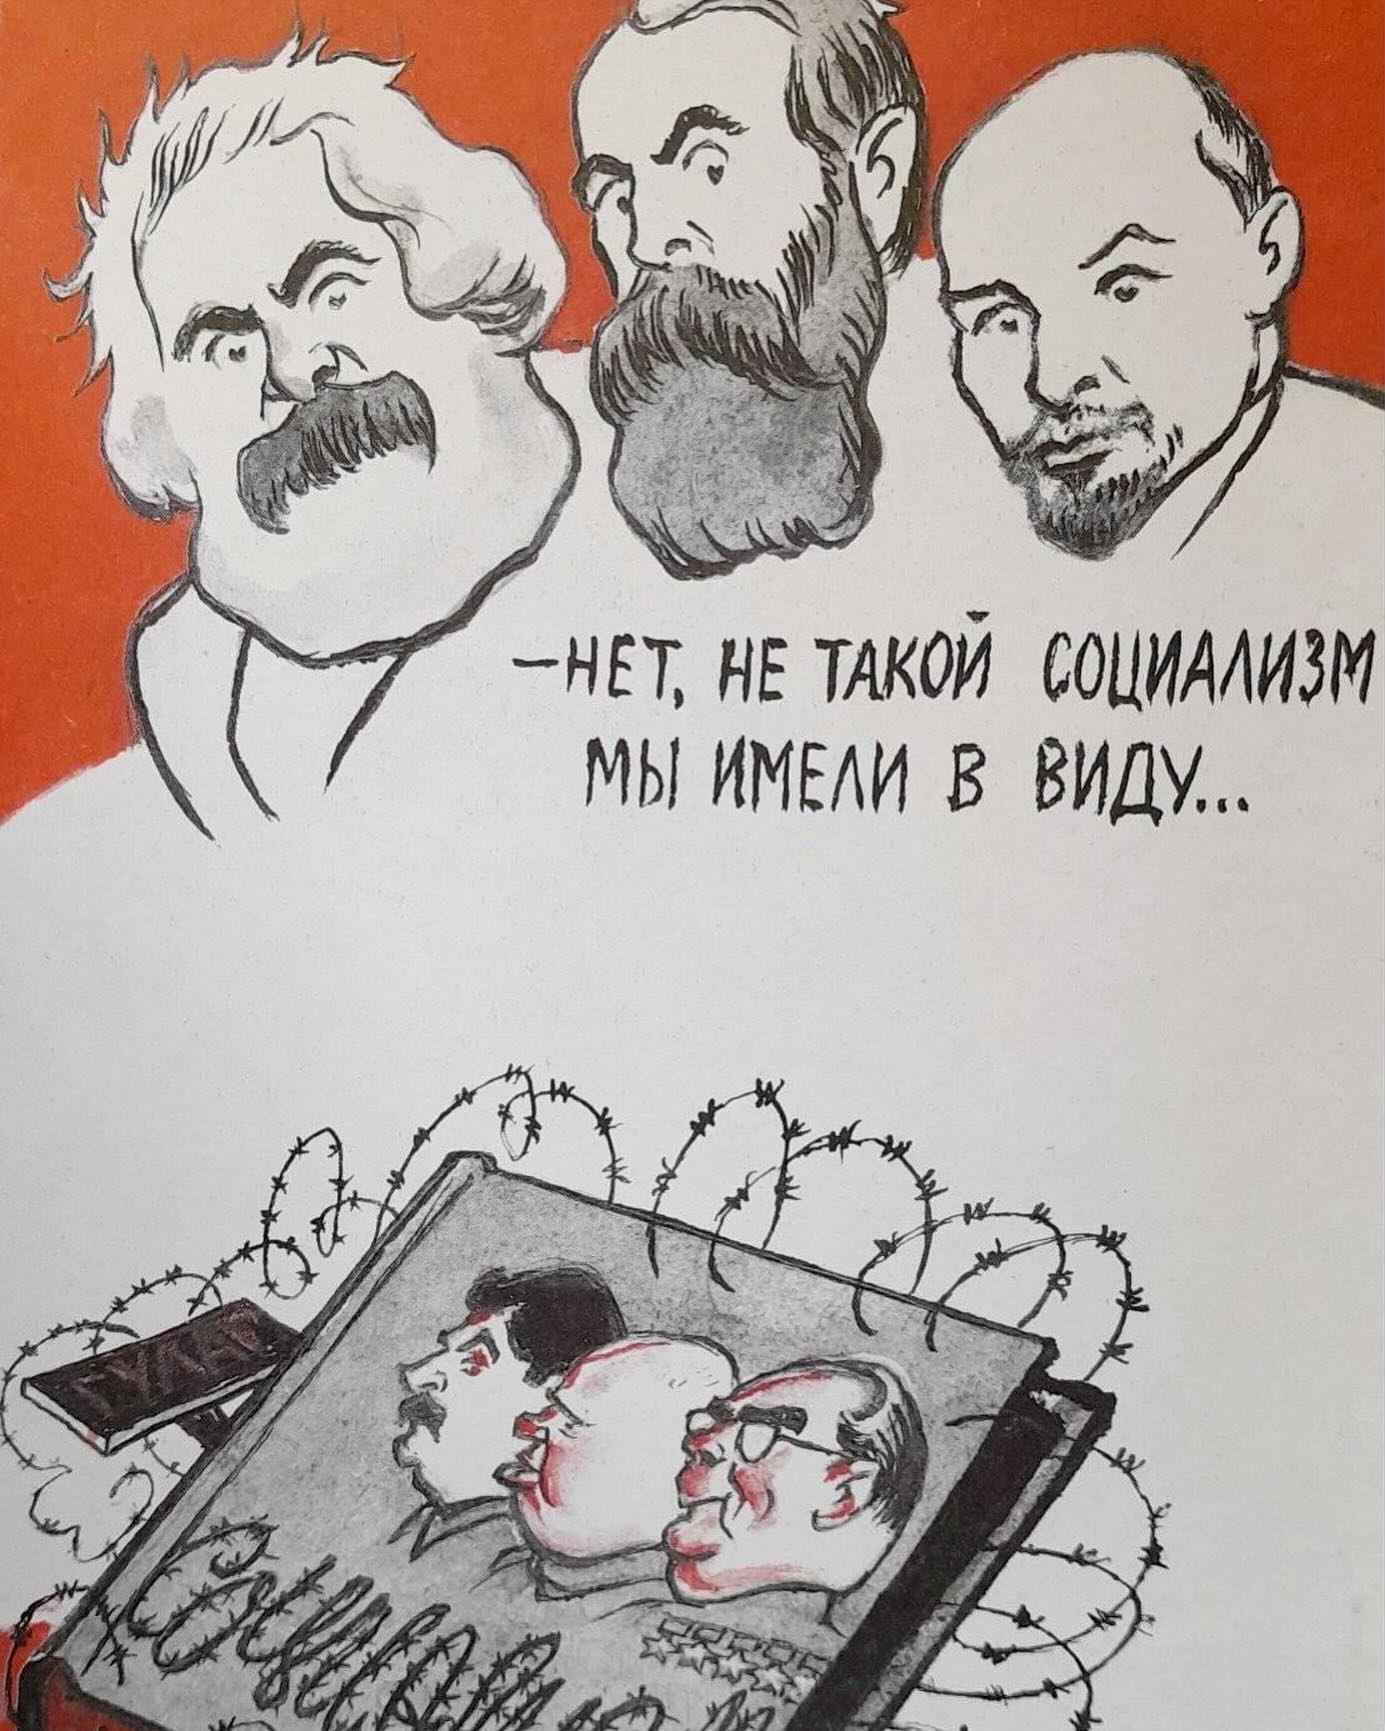 —НЕТ, НЕ ТАКОЙ СОЦИАЛИЗМ
МЫ ИМЕЛИ В ВИДУ...
ГУЛАГ